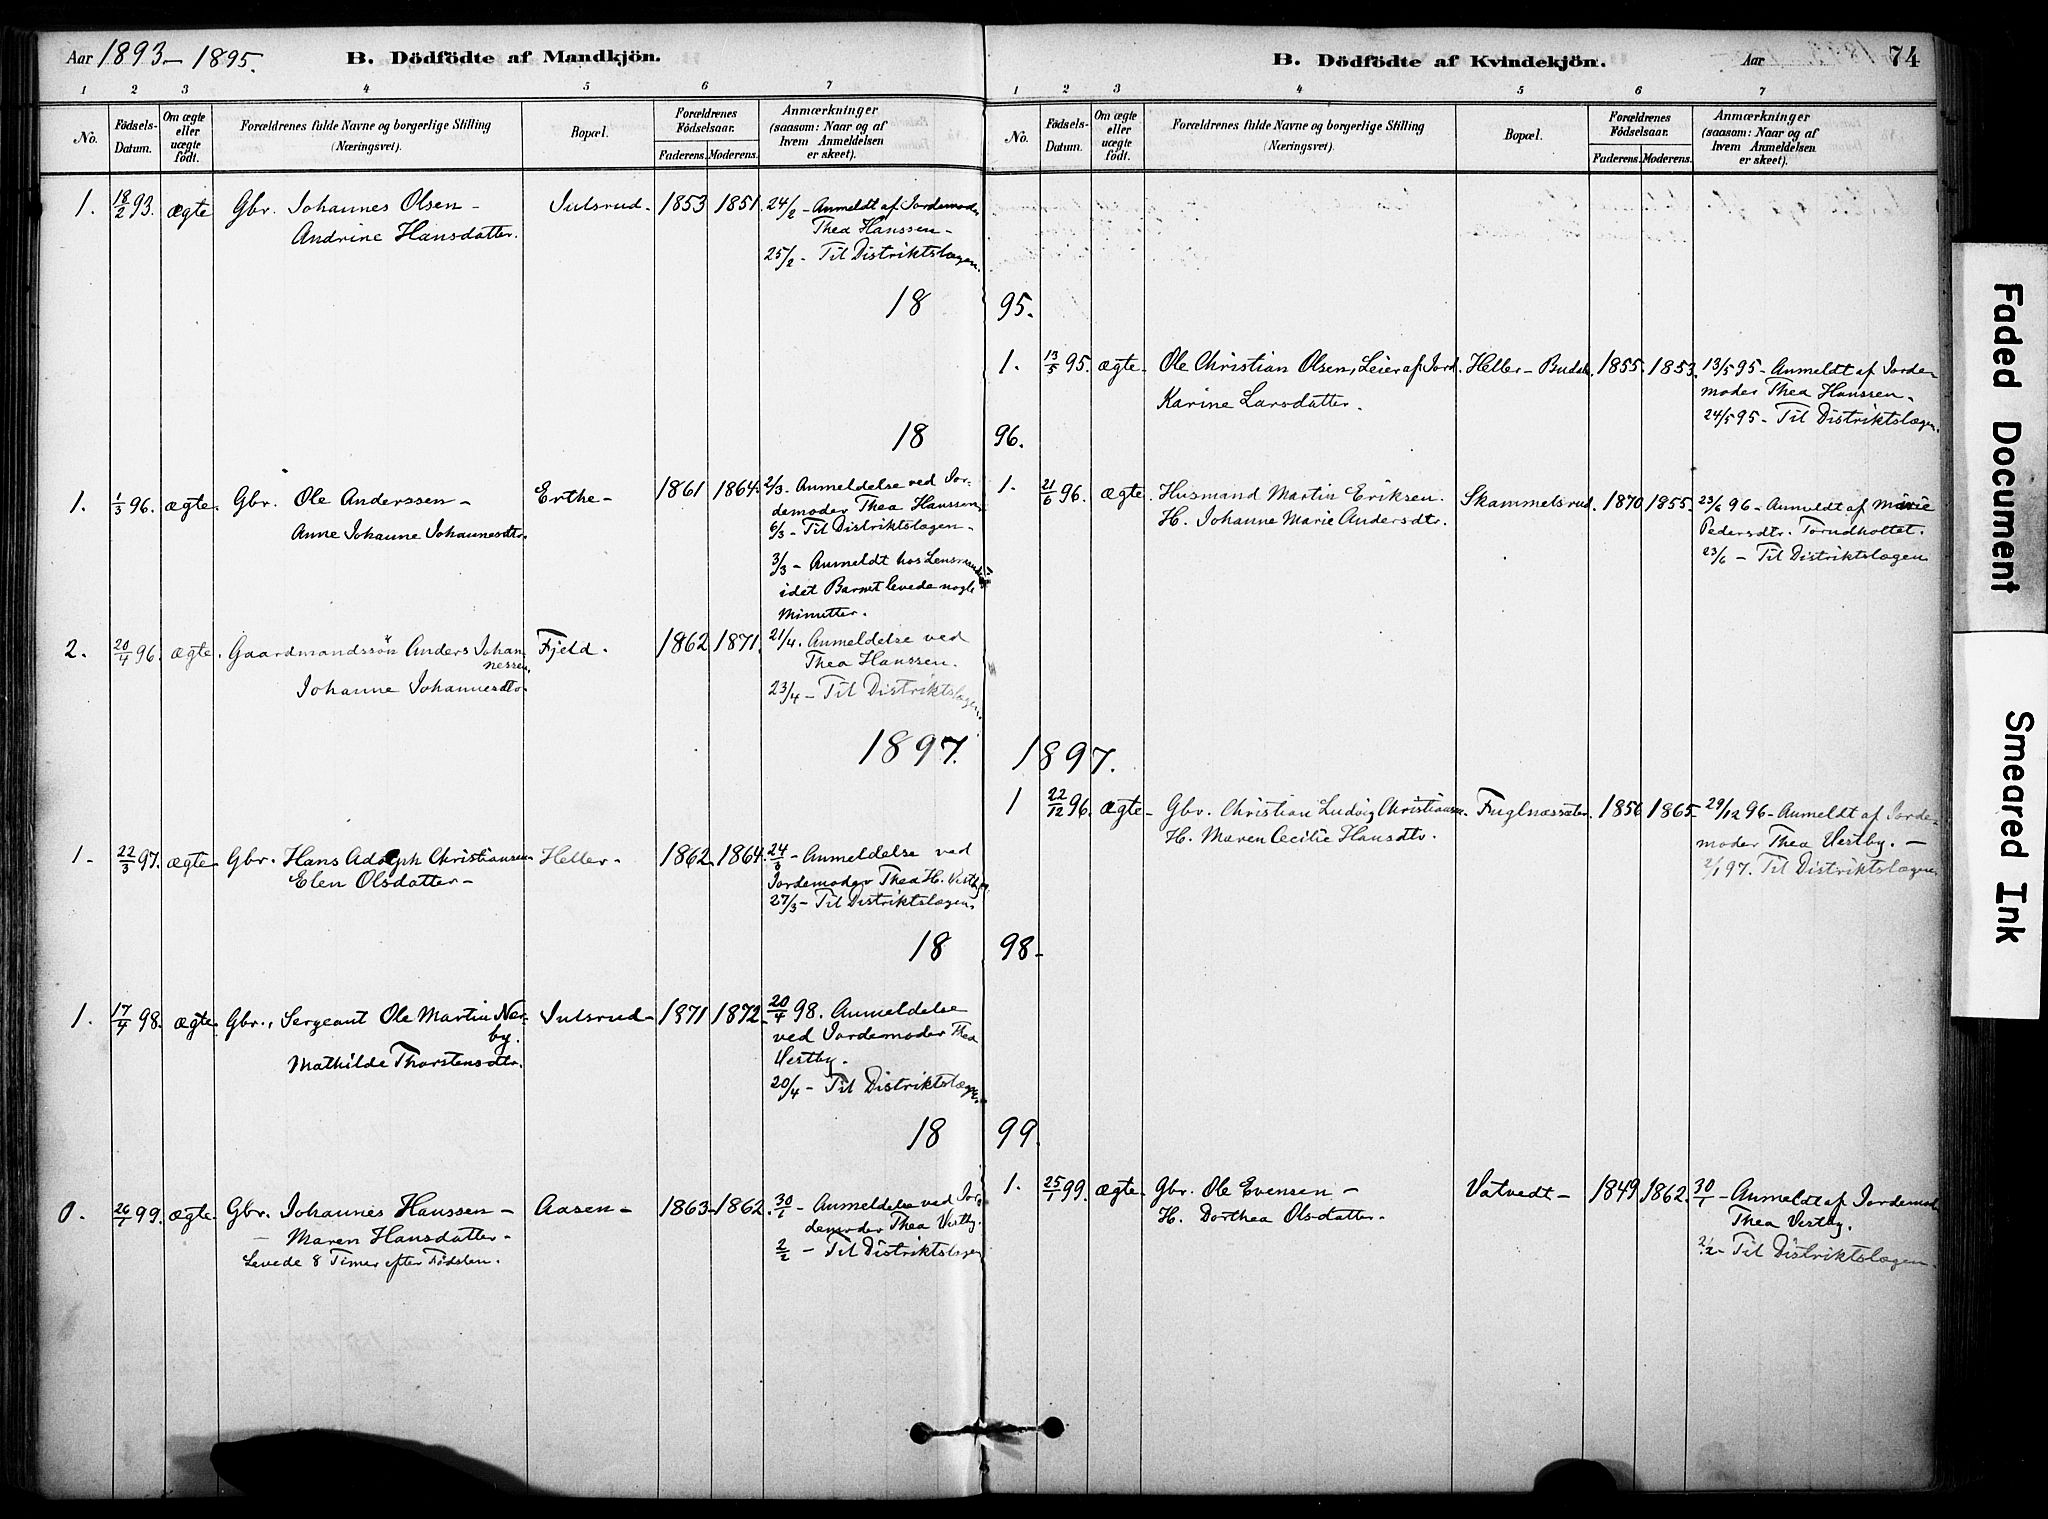 Aar 1893–1895.
B. Dödfödte af Mandkjön.
1 2 3 4 5 6 7
No.
Födsels-Datum.
Om ægte eller uægte födt.
Forældrenes fulde Navne og borgerlige Stilling
(Næringsvei).
Bopæl.
Forældrenes Födselsaar.
Faderens. Moderens.
Anmærkninger
(saasom: Naar og af
hvem Anmeldelsen
er skeet).
1. 18/2 93. ægte Gbr. Johannes Olsen – Julsrud – 1853 1851. 24/2 – Anmeldt af Jordemoder
Andrine Hansdatter. Thea Hanssen –
25/2 – Til Distriktslægen.
18
18
1. 1/3 96. ægte. Gbr. Ole Anderssen – Erthe – 1861 1864. 2/3 – Anmeldelse ved Jor-
Anne Johanne Johannesdtr. demoder Thea Hanssen
6/3 – Til Distriktslægen –
3/3 – Anmeldt hos Lensmanden
idet Barnet levede nogle
Minutter.
2. 20/4 96. ægte. Gaardmandssön Anders Johan-
nessen. Fjeld. 1862 1871. 21/4. Anmeldelse ved
Johanne Johannesdtr. Thea Hanssen.
23/4 – Til Distriktslægen.
1897.
1 – 22/3 97. ægte – Gbr. Hans Adolph Christiansen – Heller – 1862. 1864. 24/3 – Anmeldelse ved
Elen Olsdatter – Jordemoder Thea H. Vestby.
27/3 – Til Distriktslægen.
18
1. 17/4 98. ægte. Gbr., Sergeant Ole Martin Nor-
by. Julsrud – 1871 1872 – 20/4 98. Anmeldelse
Mathilde Thorstensdtr. ved Jordemoder Thea
Vestby.
20/4 – Til Distriktslægen.
18
0. 26/1 99. ægte. Gbr. Johannes Hanssen – Aasen – 1863 – 1862. 30/1 – Anmeldelse ved Jor-
– Maren Hansdatter – demoder Thea Vestby.
Levede 8 Timer efter Födslen. 2/2 – Til Distriktslægen
B. Dödfödte af Kvindekjön.
Aar
74
1 2 3 4 5 6 7
No.
Födsels-Datum.
Om ægte eller uægte födt.
Forældrenes fulde Navne og borgerlige Stilling
(Næringsvei).
Bopæl.
Forældrenes Födselsaar.
Faderens. Moderens.
Anmærkninger
(saasom: Naar og af
hvem Anmeldelsen
er skeet).
95.
1. 13/5 95. ægte – Ole Christian Olsen, Leier af Jord. Heller – 1855. 1853. 13/5 95 – Anmeldt af Jorde-
Karine Larsdatter. moder Thea Hanssen.
24/5 95 – Til Distriktslægen.
96.
1. 21/6 96. ægte. Husmand Martin Eriksen. Skammelsrud. 1870 1855. 23/6 96 – Anmeldt af Marie
H. Johanne Marie Andersdtr. Pedersdtr.
23/6 – Til Distriktslægen
1897.
1 22/12 96. ægte – Gbr. Christian Ludvig Christiansen. Fuglnæssæter. 1856 1865 – 29/12 96 – Anmeldt af Jorde-
H. Maren Cecilie Hansdtr. moder Thea Vestby. –
2/1 97. Til Distriktslægen
98 –
99.
1. 25/1 99. ægte – Gbr. Ole Evensen – Vatvedt – 1849 1862. 30/1 – Anmeldt af Jordemod.
H. Dorthea Olsdatter. Thea Vestby.
2/2 – Til Distriktslægen.
Faded Document
Smeared Ink